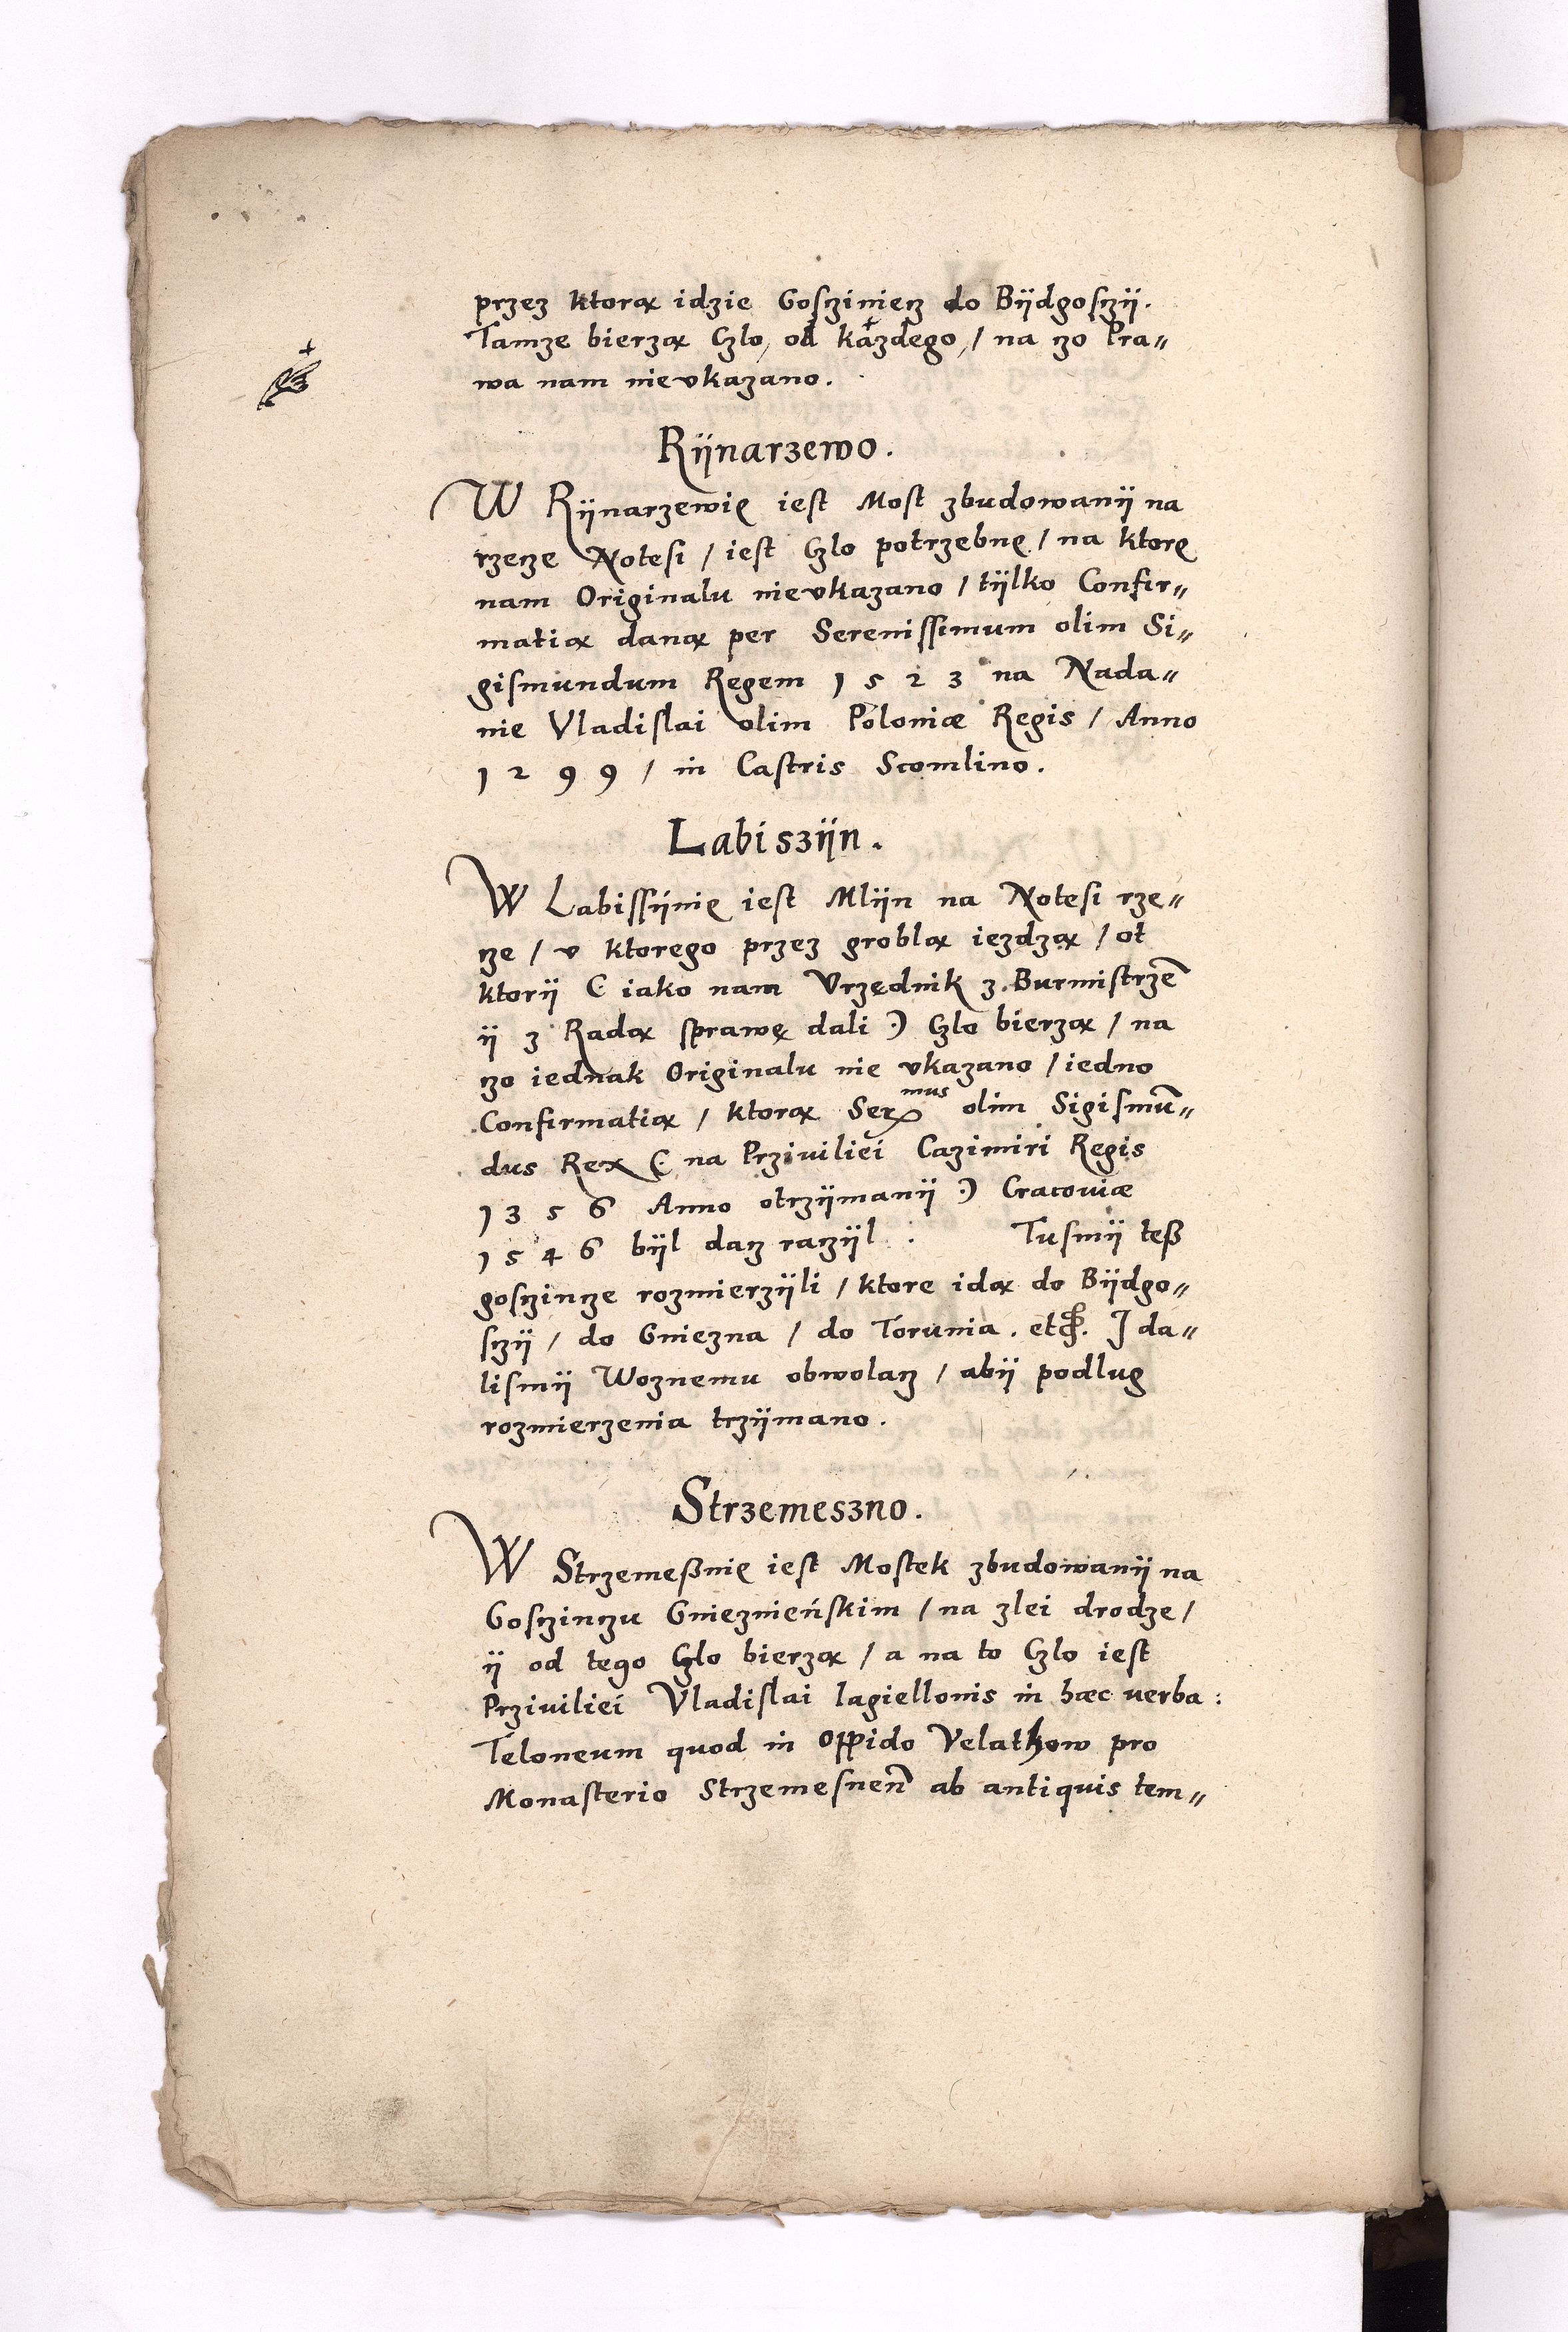 przez ktorą idzie Goscziniecz do Bÿdgosczÿ.
Tamze bierzą Czlo, od kazdego, / na czo Pra〃
wa nam nievkazano.
Rÿnarzewo.
W Rÿnarzewię iest Most zbudowanÿ na
rzecze Notesi / iest Czlo potrzebnę / na ktorę
nam Originalu nievkazano / tÿlko Confir〃
matią daną per Serenissimum olim Si〃
gismundum Regem 1523 na Nada〃
nie Vladislai olim Poloniæ Regis / Anno
1299 / in Castris Scomlino.
Labiszÿn.
W Labissÿnię iest Mlÿn na Notesi rze〃
cze / v ktorego przez groblą iezdzą / ot
ktorÿ (: iako nam Vrzędnik z Burmistrzē
ÿ z Radą sprawę dali :) Czlo bierzą / na
czo iednak Originalu nie vkazano / iedno
Confirmatią / ktorą Ser^mus olim Sigismū〃
dus Rex (: na Prziviliei Cazimiri Regis
1356 Anno otrzÿmanÿ :) Cracouiæ
1546 bÿl dacz raczÿl : Tusmÿ teß
goscincze rozmierzÿli / ktore idą do Bÿdgo〃
sczÿ / do Gniezna / do Torunia. etc. I da〃
lismÿ Woznemu obwolacz / abÿ podlug
rozmierzenia trzÿmano.
Strzemeszno.
W Strzemeßnię iest Mostek zbudowanÿ na
Gosczinczu Gniezńieńskim / na zlei drodze /
ÿ od tego Czlo bierzą / a na to Czlo iest
Prziuiliei Vladislai Iagiellonis in hæc verba :
Teloneum quod in oppido Velatkow pro
Monasterio Strzemesnen̄ ab antiquis tem〃